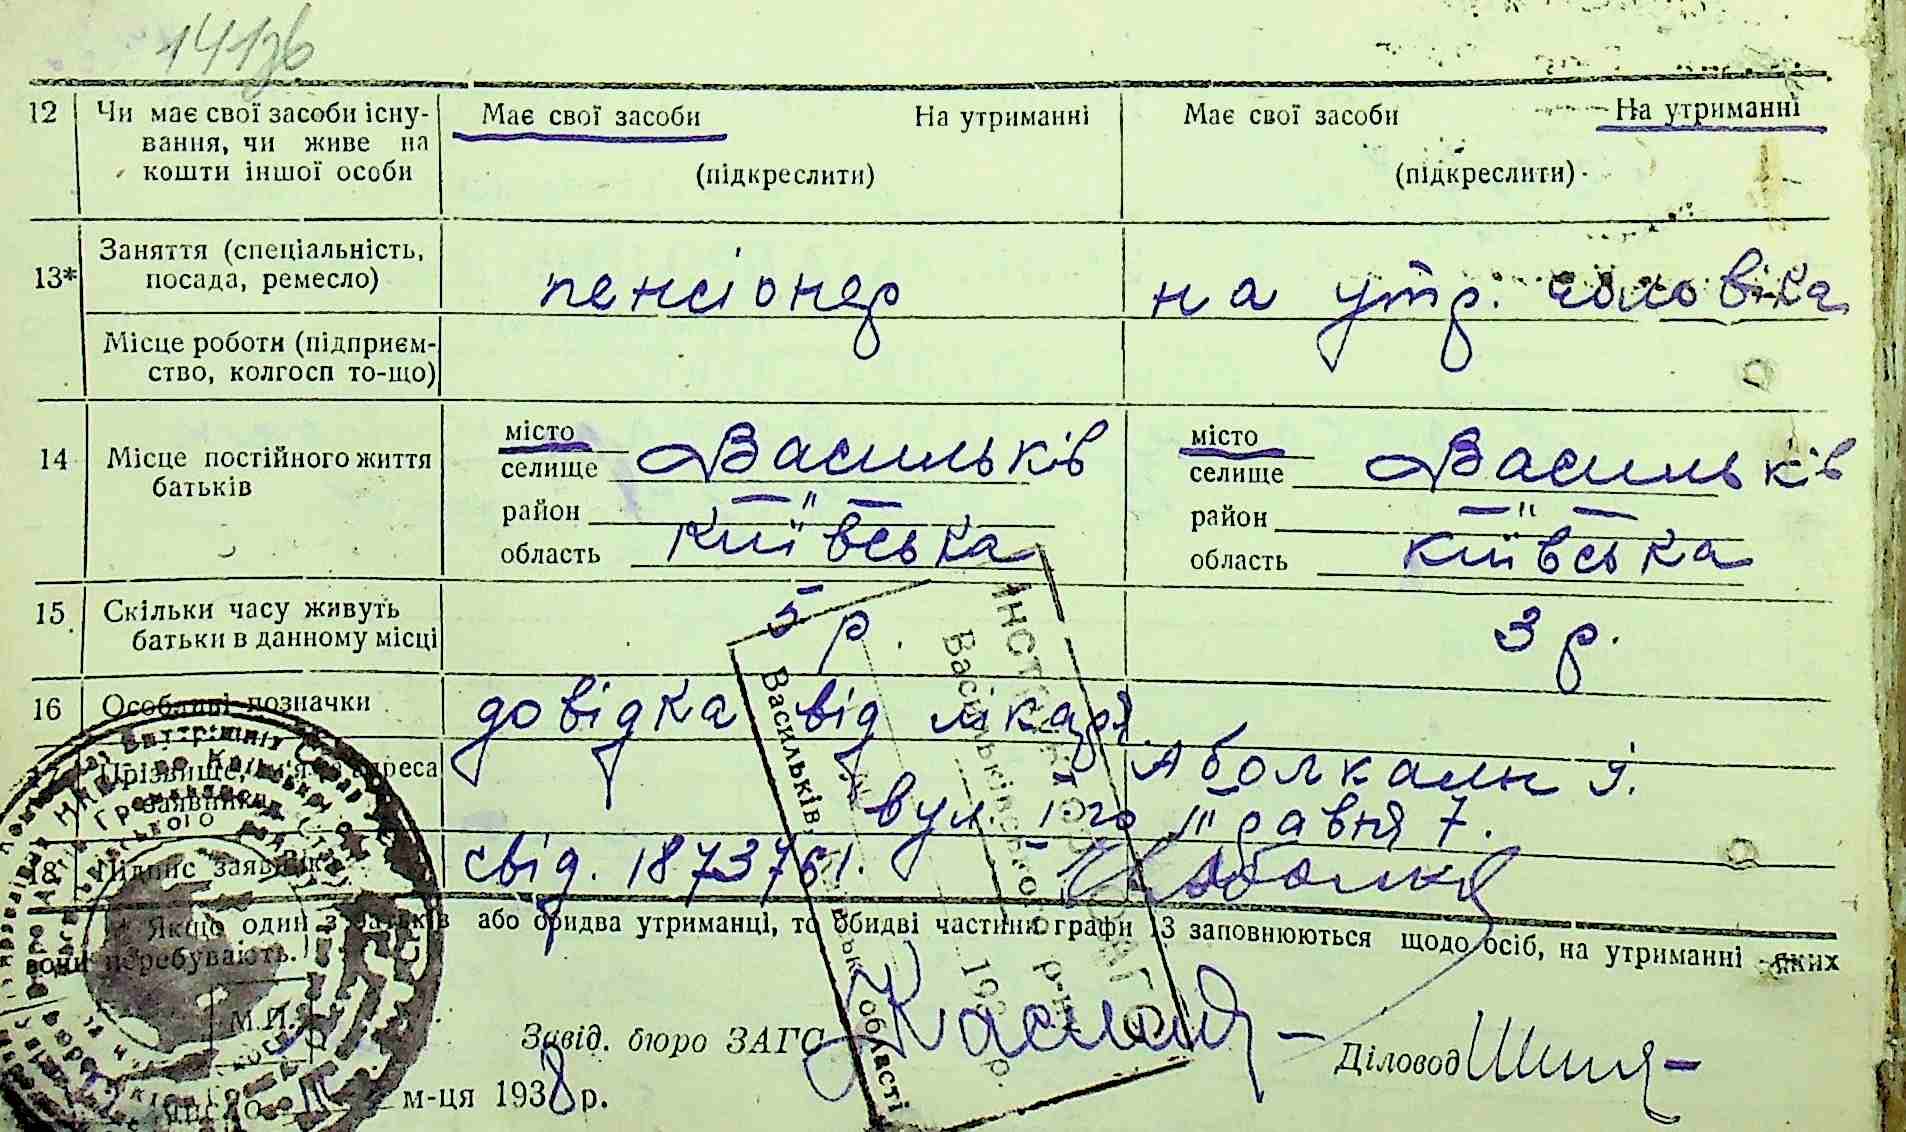 12 Чи має свої засоби існу- Має свої засоби На утриманні Має свої засоби На утриманні
вання, чи живе на
кошти іншої особи (підкреслити) (підкреслити)
Заняття (спеціальність,
13* посада, ремесло) пенсіонер на утр. чоловіка
Місце роботи (підприєм-
ство, колгосп то-що)
місто Васильків місто Васильків
14 Місце постійного життя селище селище
батьків район —"— район —"—
область київська область київська
15 Скільки часу живуть 5 р. 3 р.
батьки в данному місці
16 Особливі позначки довідка від лікаря
17 Прізвище, адреса Аболкалн
заявника вул 1го травня 7.
18 Підпис заявника свід. 1873761.
* Якщо один з батьків або обидва утриманці, то обидві частини графи 13 заповнюються щодо осіб, на утриманні яких
вони перебувають.
М.П.
Завід. бюро ЗАГС Діловод
число м-ця 1938 р.